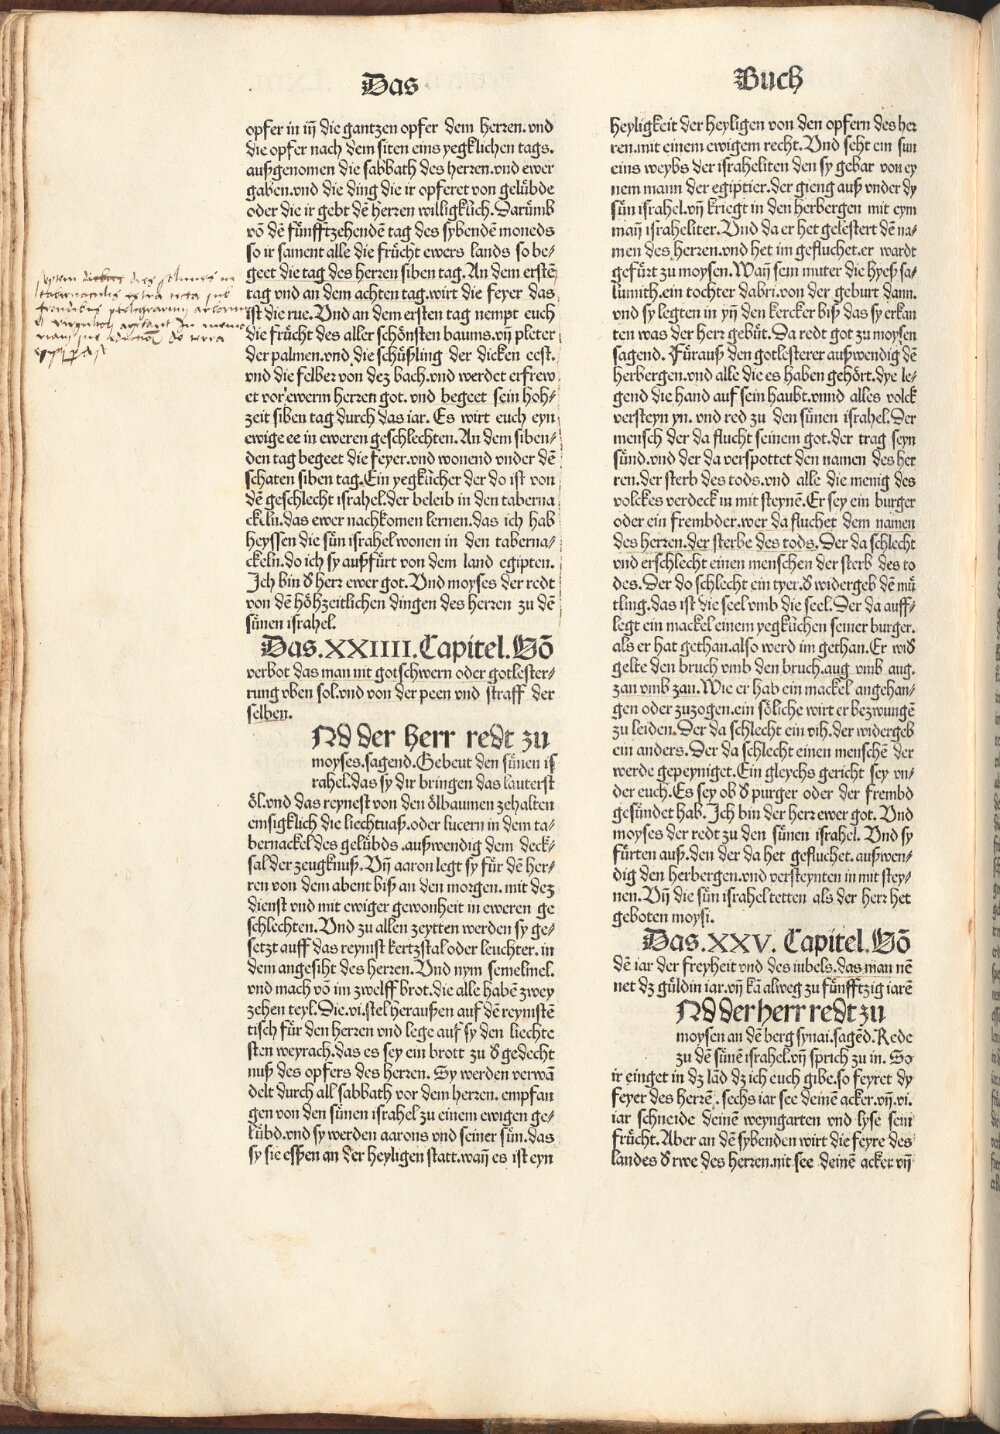 Das
Buch
opfer in iṅ die gantzen opfer dem herren. vnd
die opfer nach dem siten eins yegklichen tags.
außgenomen die sabbath des herren.vnd ewer
gaben.vnd die ding die ir opferet von gelübde
oder die ir gebt dē herren willigklich.Darumb
vō dē fünfftzehendē tag des sybendē moneds
so ir sament alle die frücht ewers lands so be⸗
geet die tag des herren siben tag.An dem erstē
tag vnd an dem achten tag.wirt die feyer das
ist die rue. Vnd an dem ersten tag nempt euch
die frücht des aller schönsten baums.vn̄ pleter
der palmen.vnd die schüßling der dicken eest.
vnd die felber von dez bach.vnd werdet erfrew
et vor ewerm herren got. vnd begeet sein hoh⸗
zeit siben tag durch das iar. Es wirt euch eyn
ewige ee in eweren geschlechten.An dem siben⸗
den tag begeet die feyer.vnd wonend vnder dē
schaten siben tag.Ein yegklicher der do ist von
dē geschlecht israhel.der beleib in den taberna
ckeln.das ewer nachkomen lernen.das ich hab
heyssen die sün israhel wonen in den taberna⸗
ckeln.do ich sy außfürt von dem land egipten.
Ich bin d̕ herr ewer got. Vnd moyses der redt
von dē höhzeitlichen dingen des herren zu dē
sünen israhel.
Das.XXIIII.Capitel.Vō
verbot das man nit gotschwern oder gotlester⸗
rung vben sol.vnd von der peen vnd straff der
selben.
Nd der herr redt zu
moyses.sagend.Gebeut den sünen is
rahel.das sy dir bringen das lauterst
öl.vnd das reynest von den ölbaumen zehalten
emsigklich die liechtuaß.oder lucern in dem ta⸗
bernackel des gelübds.außwendig dem deck⸗
sal der zeugknuß.Vn̄ aaron legt sy für dē her⸗
ren von dem abent biß an den morgen. mit dez
dienst vnd mit ewiger gewonheit in eweren ge
schlechten.Vnd zu allen zeytten werden sy ge⸗
setzt auff das reynist kertzstal oder leuchter. in
dem angesiht des herren. Vnd nym semelmel.
vnd mach vō im zwelff brot.die alle habē zwey
zehen teyl.Die.vi.stel heraußen auf dē reynistē
tisch für den herren vnd lege auf sy den liechte
sten weyrach.das es sey ein brott zu d̕ gedecht
nuß des opfers des herren. Sy werden verwā
delt durch all sabbath vor dem herren. empfan
gen von den sünen israhel zu einem ewigen ge⸗
lübd.vnd sy werden aarons vnd seiner sün.das
sy sie essen an der heyligen statt.wañ es ist eyn
heyligkeit der heyligen von den opfern des her
ren.mit einem ewigem recht. Vnd seht ein sun
eins weybs der israheliten den sy gebar von ey
nem mann der egiptier.der gieng auß vnder dy
sün israhel.vn̄ kriegt in den herbergen mit eym
mañ israheliter. Vnd da er het gelestert dē na⸗
men des herren.vnd het im gefluchet.er wardt
gefürt zu moysen.Wañ sein muter die hyeß sa⸗
lumith.ein tochter dabri.von der geburt dann.
vnd sy legten in yn̄ den kercker biß das sy erkan
ten was der herr gebüt. Da redt got zu moysen
sagend. Füraus den gotlesterer außwendig dē
herbergen.vnd alle die es haben gehört.dye le⸗
gend die hand auf sein haubt.vnnd alles volck
versteyn yn. vnd red zu den sünen israhel.Der
mensch der da flucht seinem got.der trag seyn
sünd.vnd der da verspottet den namen des her
ren.der sterb des tods.vnd alle die menig des
volckes verdeck in mit steynē.Er sey ein burger
oder ein frembder.wer da fluchet dem namen
des herren.der sterbe des tods.Der da schlecht
vnd erschlecht einen menschen der sterb des to
des.Der do schlecht ein tyer.d̕ widergeb dē mü
tling.das ist die seel vmb die seel.Der da auff⸗
legt ein mackel einem yegklichen seiner burger.
als er hat gethan.also werd im gethan.Er wid̕
gelte den bruch vmb den bruch.aug vmb aug.
zan vmb zan.Wie er hab ein mackel angehan⸗
gen oder zuzogen.ein söliche wirt er bezwungē
zu leiden.Der da schlecht ein vih.der widergeb
ein anders.Der da schlecht einen menschē der
werde gepeyniget.Ein gleychs gericht sey vn⸗
der euch.Es sey ob d̕ purger oder der frembd
gesündet hab. Ich bin der herr ewer got. Vnd
moyses der redt zu den sünen israhel. Vnd sy
fürten auß.den der da het gefluchet. außwen⸗
dig den herbergen.vnd versteynten in mit stey⸗
nen. Vn̄ die sün israhel tetten als der herr het
geboten moysi.
Das.XXV. Capitel.Vō
dē iar der freyheit vnd des iubels.das man nē
net dz güldin iar.vn̄ kā alweg zu fünfftzig iarē
Nd der herr redt zu
moysen an dē berg synai.sagēd.Rede
zu dē sünē israhel.vn̄ sprich zu in. So
ir einget in dz lād dz ich euch gibe.so feyret dy
feyer des herrē. sechs iar see deinē acker.vn̄.vi.
iar schneide deinē weyngarten vnd lyse sein
frücht.Aber an dē sybenden wirt die feyre des
landes d̕ rwe des herren.nit see deinē acker vn̄